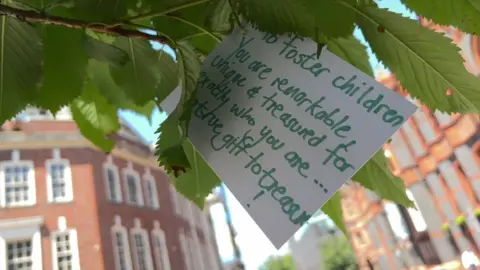 to foster children
You are remarkable
unique & treasured for
who you are...
gift to treasure